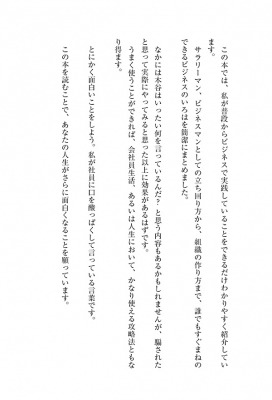 この本では、私が普段からビジネスで実践していることをできるだけわかりやすく紹介してい
ます。
サラリーマン・ビジネスマンとしての立ち回り方から、組織の作り方まで、誰でもすぐまねの
できるビジネスのいろはを簡潔にまとめました。
なかには木谷はいったい何を言っているんだ？と思う内容もあるかもしれませんが、騙された
と思って実際にやってみると思った以上に効果があるはずです。
うまく使うことができれば、会社員生活、あるいは人生において、かなり使える攻略法ともな
り得ます。
とにかく面白いことをしよう。私が社員に口を酸っぱくして言っている言葉です。
この本を読むことで、あなたの人生がさらに面白くなることを願っています。